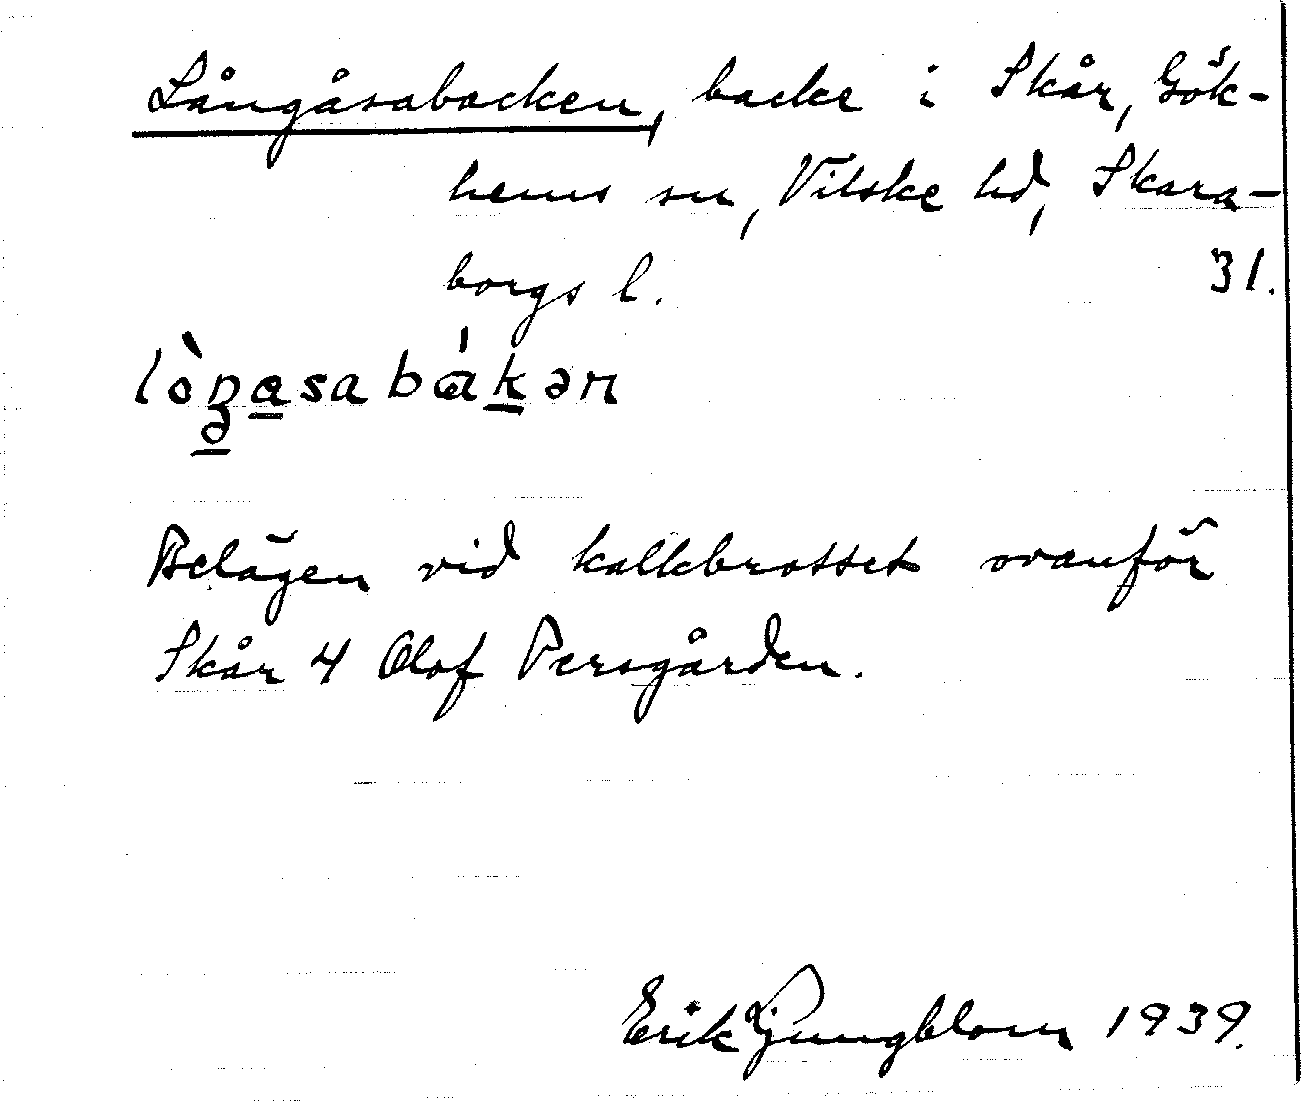 Långåsabacken, backe i Skår, Gök-
hems sn, Vilske hd, Skara-
borgs l. 31.
lòŋasabákən
ə
Belägen vid kalkbrottet ovanför
Skår 4 Olof Persgården.
Erik Ljungblom 1939.